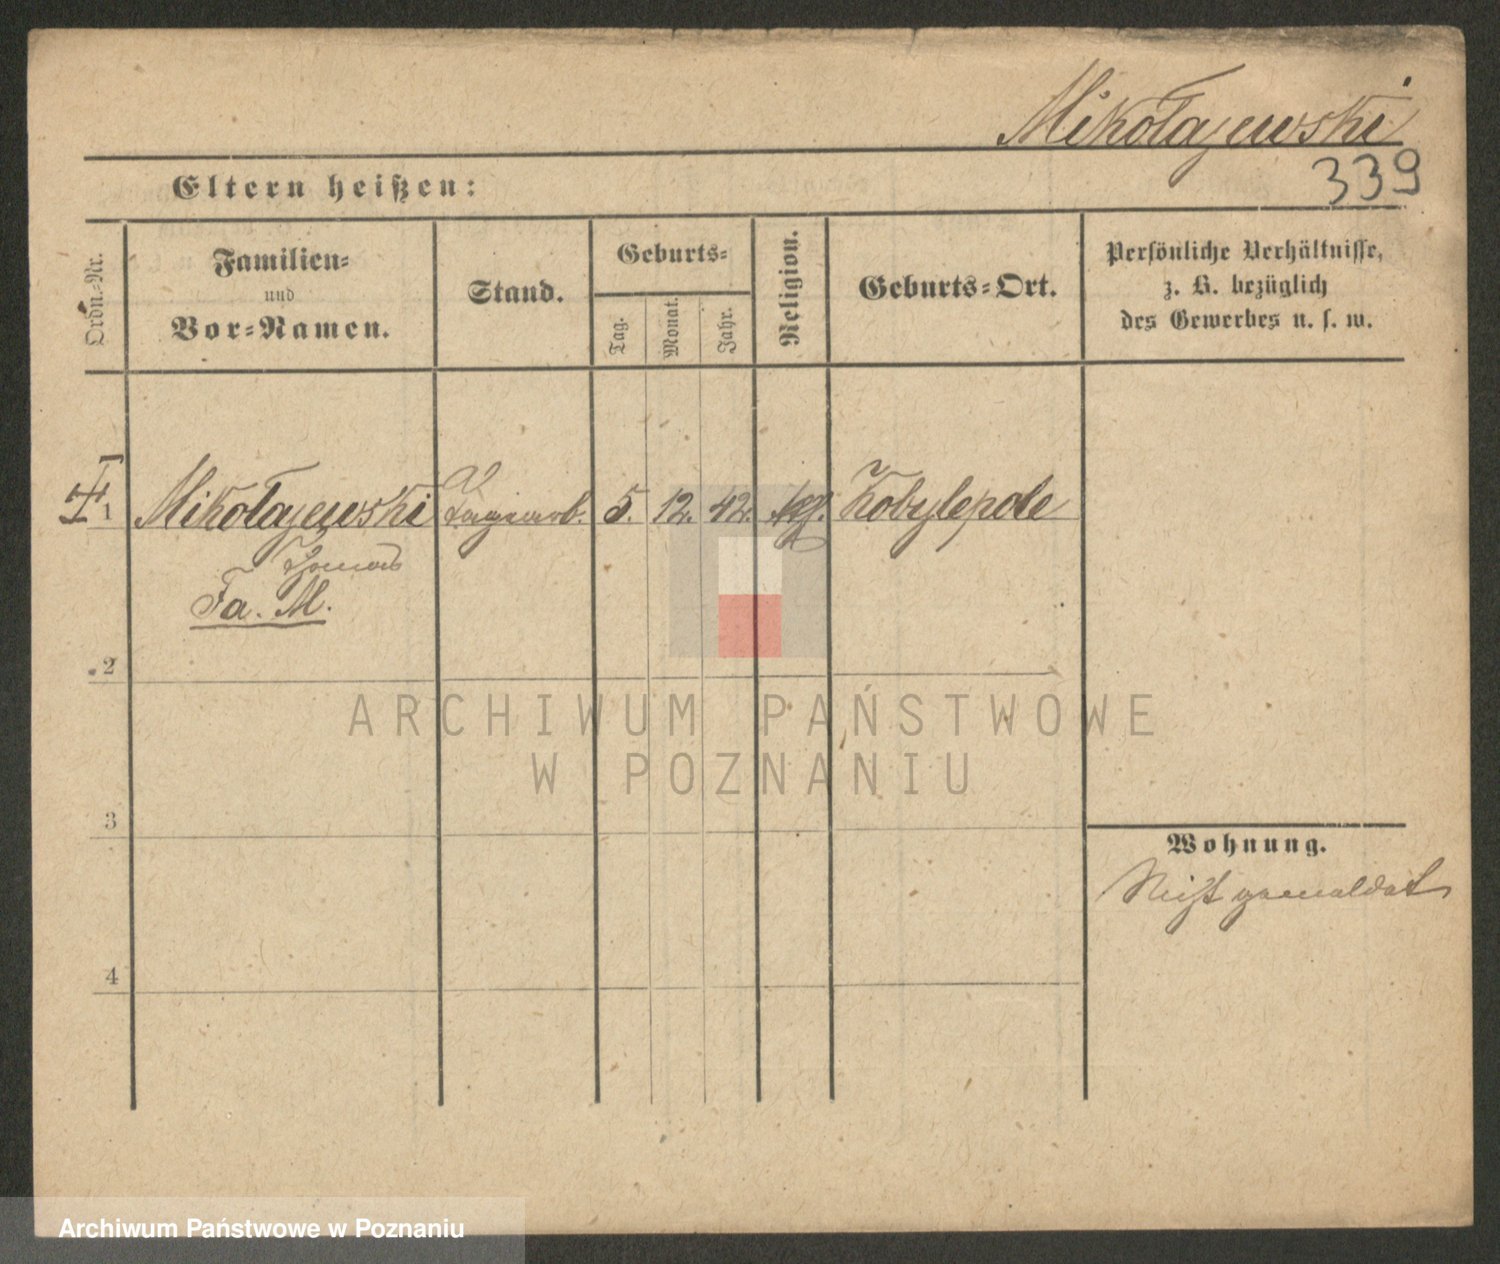 Mikołajewski
339
Eltern heißen:
Ordn.-Nr.
Familien-
und
Vor-Namen.
Stand.
Geburts-
Tag.
Monat.
Jahr.
Religion.
Geburts-Ort.
Persönliche Verhältnisse,
z. B. bezüglich
des Gewerbes u. s. w.
1 Mikołajewski Tagearb. 5. 12. 42. Kobylepole
Thomas
Fa. M.
2
3
4
Wohnung.
Nicht gemeldet
ARCHIWUM PAŃSTWOWE
W POZNANIU
Archiwum Państwowe w Poznaniu